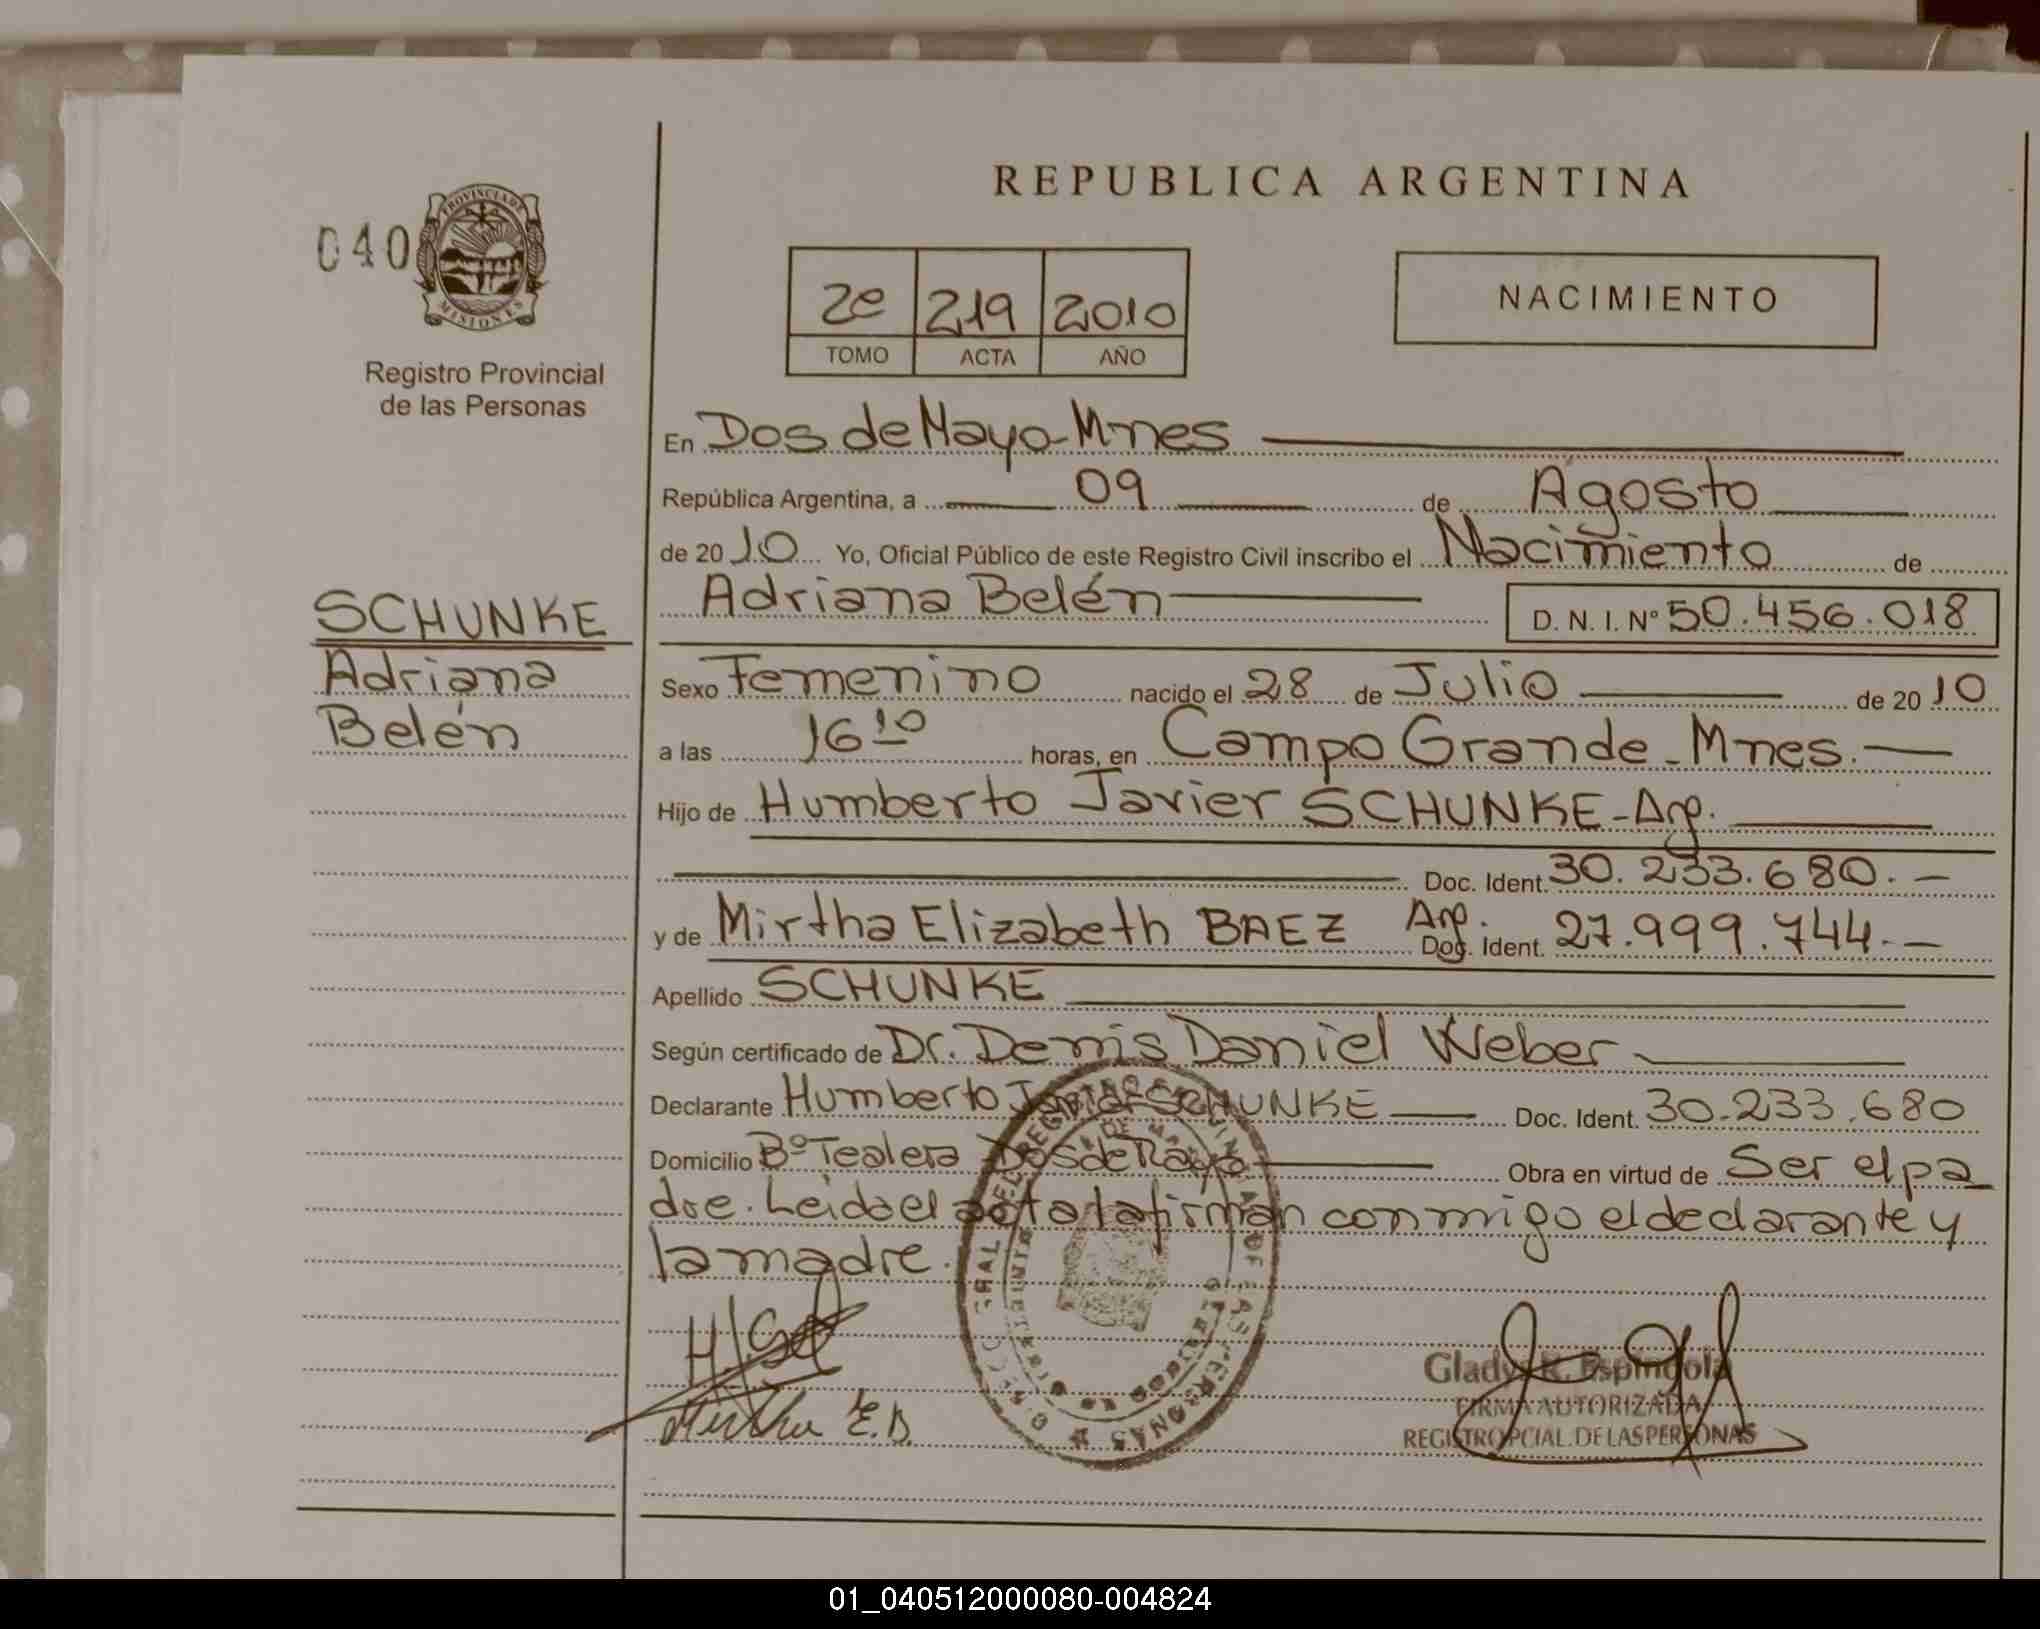 REPUBLICA ARGENTINA
040
PROVINCIA DE
MISIONES
Registro Provincial
de las Personas
2e 219 2010
TOMO ACTA AÑO
NACIMIENTO
SCHUNKE
Adriana
Belén
En Dos de Mayo-Mnes
República Argentina, a 09 de Agosto
de 2010 Yo, Oficial Público de este Registro Civil inscribo el Nacimiento de
Adriana Belén D. N. I. Nº 50.456.018
Sexo Femenino nacido el 28 de Julio de 2010
a las 16 10 horas, en Campo Grande-Mnes.
Hijo de Humberto Javier SCHUNKE-Arg.
Doc. Ident. 30.233.680.-
y de Mirtha Elizabeth BAEZ Arg. Doc. Ident. 27.999.744.-
Apellido SCHUNKE
Según certificado de Dr. Denis Daniel Weber
Declarante Humberto Javier SCHUNKE Doc. Ident. 30.233.680
Domicilio Bº Tealera Dos de Mayo Obra en virtud de Ser el pa
dre. Leida el acta la firman conmigo el declarante y
la madre.
Mirtha E.B.
Gladys R. Espindola
FIRMA AUTORIZADA
REGISTRO PCIAL. DE LAS PERSONAS
01_040512000080-004824